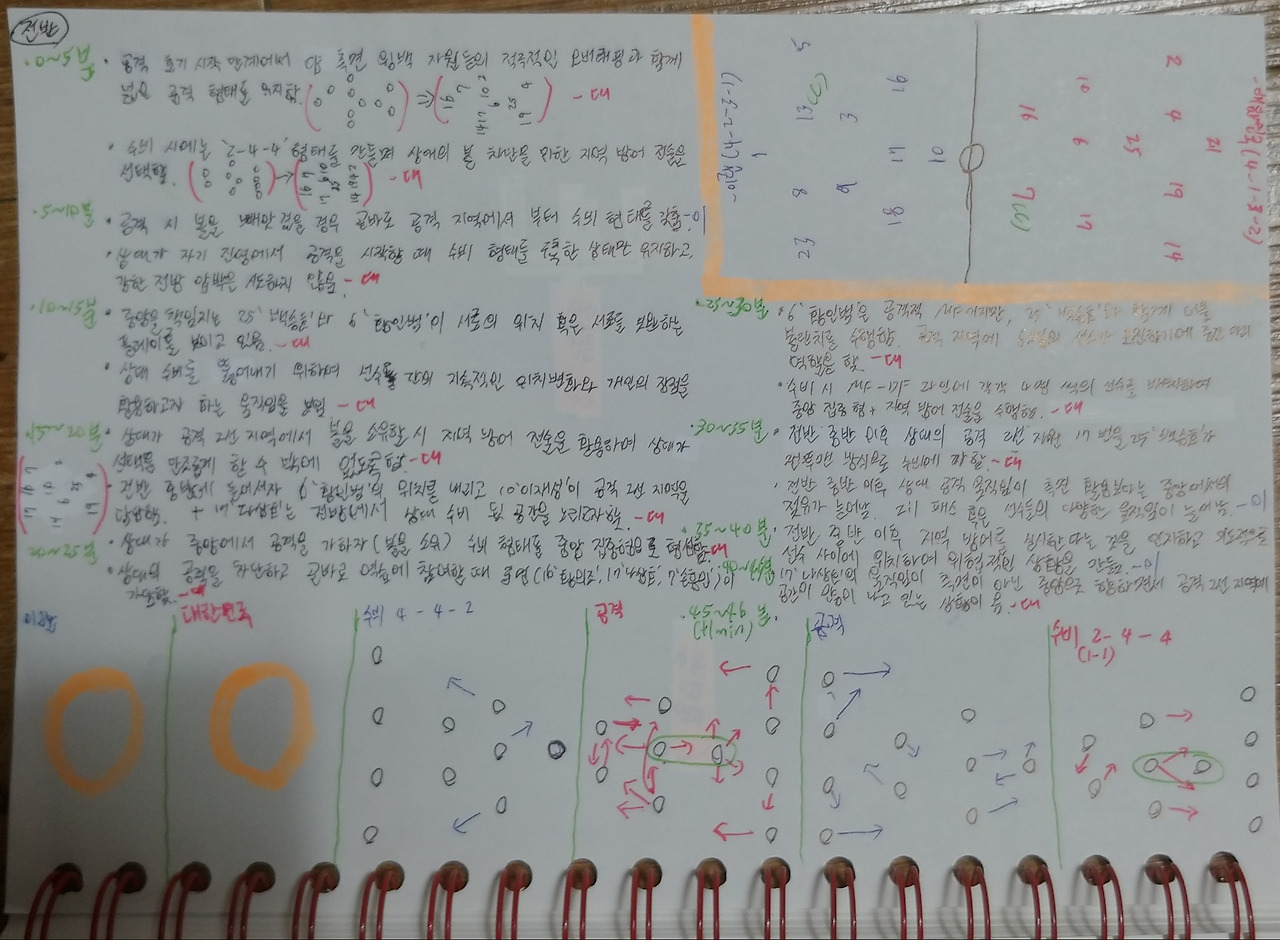 전반
·0~5분
· 공격 초기 시작 단계에서 양 측면 윙백 자원들의 적극적인 오버래핑과 함께
넓은 공격 형태를 유지함. - 대
· 수비 시에는 '2-4-4' 형태를 만들며 상대의 볼 차단을 위한 지역 방어 전술을
선택함. - 대
·5~10분
· 공격 시 볼을 빼앗겼을 경우 곧바로 공격 지역에서부터 수비 형태를 갖춤. - 이
· 상대가 자기 진영에서 공격을 시작할 때 수비 형태를 구축한 상태만 유지하고,
강한 전방 압박은 시도하지 않음. - 대
·10~15분
· 중앙을 책임지는 25 '백승호'와 6 '황인범'이 서로의 위치 혹은 서로를 보완하는
플레이를 보이고 있음. - 대
· 상대 수비를 뚫어내기 위하여 선수들 간의 지속적인 위치변화와 개인의 장점을
활용하고자 하는 움직임을 보임. - 대
·15~20분
· 상대가 공격 2선 지역에서 볼을 소유할 시 지역 방어 전술을 활용하여 상대가
선택을 할 수 밖에 없도록 함. - 대
· 전반 중반에 들어서자 6 '황인범'의 위치를 내리고 10 '이재성'이 공격 2선 지역을
담당함. + 17 '나상호'는 전방에서 상대 수비 뒷 공간을 노리고자 함. - 대
·20~25분
· 상대가 중앙에서 공격을 가하자(볼을 소유) 수비 형태를 중앙 집중형으로 형성함. - 대
· 상대의 공격을 차단하고 곧바로 역습에 참여할 때 (16 '황의조', 17 '나상호', 7 '손흥민')이
가담함. - 대
-이집트(4-2-3-1)
5 13 (C) 8 23
3
16 14 18
10
1
-대한민국(4-1-3-2)
2 4 19 14
21
25
10 6 17
16 7(C)
·25~30분
· 6 '황인범'은 공격적 MF이지만, 25 '백승호'와 함께 더블
볼란치를 수행함. 공격 지역에 선수가
역할을 함. - 대
· 수비 시 MF-DF 라인에 각각 4명 씩의 선수를 배치하여
중앙 집중형 + 지역 방어 전술을 수행함. - 대
·30~35분
· 전반 중반 이후 상대의 공격 2선 자원 17번을 25 '백승호'가
방식으로 수비에 가함. - 대
· 전반 중반 이후 상대 공격 움직임이 측면 활용보다는 중앙에서의
점유가 늘어남. 2대1 패스 혹은 선수들의 다양한 움직임이 늘어남. - 이
·35~40분
· 전반 중반 이후 지역 방어를 실시한다는 것을 인지하고 의도적으로
선수 사이에 위치하여 위협적인 상황을 만듦. - 이
·40~45분
· 17 '나상호'의 움직임이 측면이 아닌 중앙으로 향하면서 공격 2선 지역에
공간이 나고 있는 상황이 옴. - 대
·45~46분.
(+1min)
이집트
대한민국
수비 4-4-2
공격
공격
수비 2-4-4
(1-1)